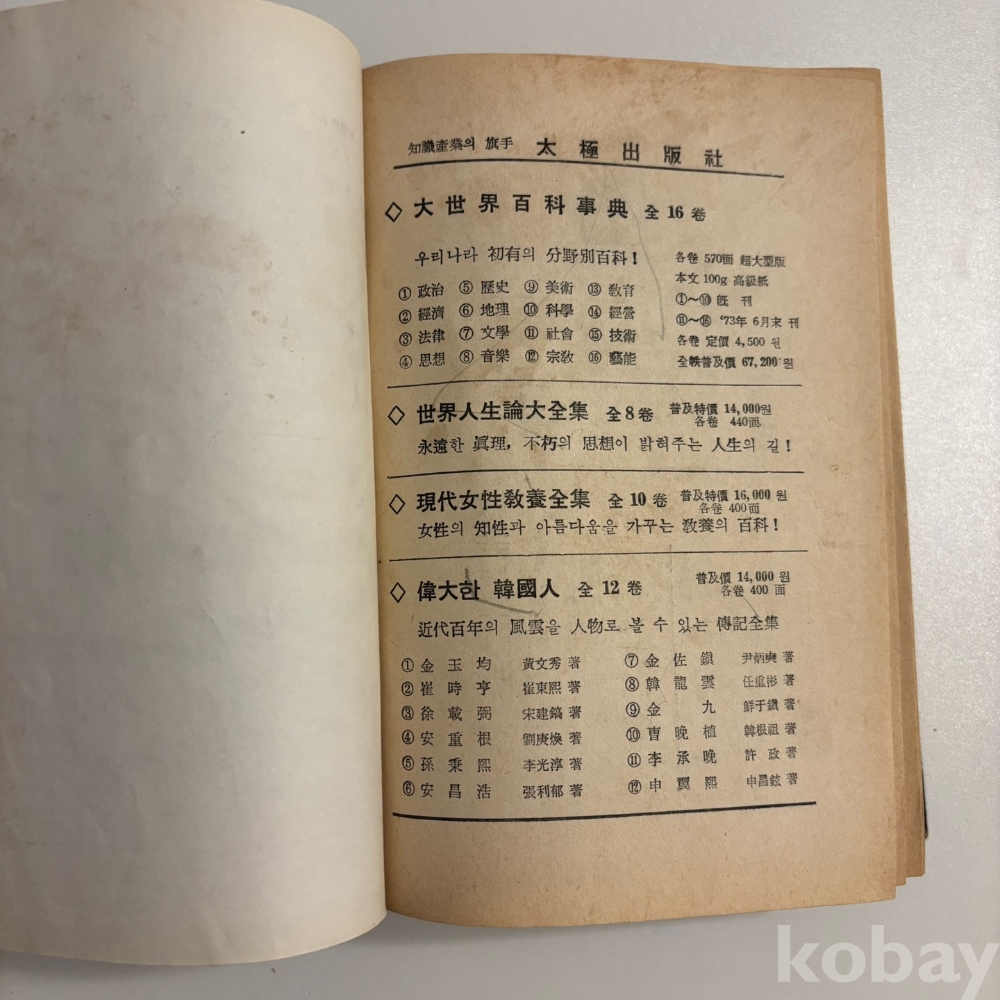 知識産業의 旗手 太極出版社
◇ 大世界百科事典 全 16 卷
우리나라 初有의 分野別百科! 各卷 570面 超大型版
本文 100g 高級紙
① 政治 ⑤ 歷史 ⑨ 美術 ⑬ 敎育 ①~⑩ 旣刊
② 經濟 ⑥ 地理 ⑩ 科學 ⑭ 經營 ⑪~⑯ '73年 6月末 刊
③ 法律 ⑦ 文學 ⑪ 社會 ⑮ 技術 各卷 定價 4,500 원
④ 思想 ⑧ 音樂 ⑫ 宗敎 ⑯ 藝能 全帙普及價 67,200원
◇ 世界人生論大全集 全 8 卷 普及特價 14,000원
各卷 440面
永遠한 眞理, 不朽의 思想이 밝혀주는 人生의 길!
◇ 現代女性敎養全集 全 10 卷 普及特價 16,000 원
各卷 400面
女性의 知性과 아름다움을 가꾸는 敎養의 百科!
◇ 偉大한 韓國人 全 12 卷 普及價 14,000 원
各卷 400 面
近代百年의 風雲을 人物로 볼 수 있는 傳記全集
① 金玉均 黃文秀 著 ⑦ 金佐鎭 尹炳奭 著
② 崔時亨 崔東熙 著 ⑧ 韓龍雲 任重彬 著
③ 徐載弼 宋建鎬 著 ⑨ 金九 鮮于鎭 著
④ 安重根 劉庚煥 著 ⑩ 曺晩植 韓根祖 著
⑤ 孫秉熙 李光淳 著 ⑪ 李承晩 許政 著
⑥ 安昌浩 張利郁 著 ⑫ 申翼熙 申昌鉉 著
kobay